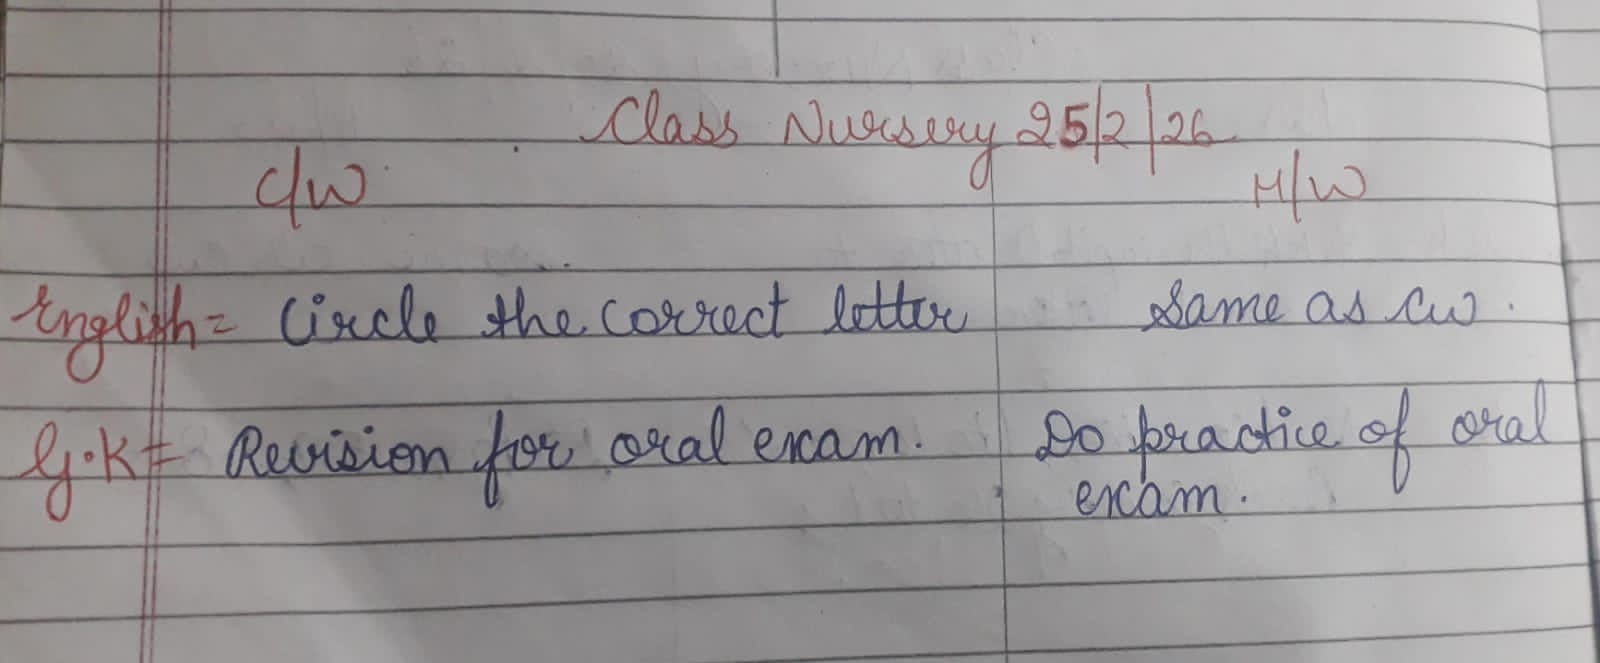 Class Nursery 25/2/26
C/W H/W
English = Circle the correct letter Same as cw.
G.K = Revision for oral exam. Do practice of oral
exam.